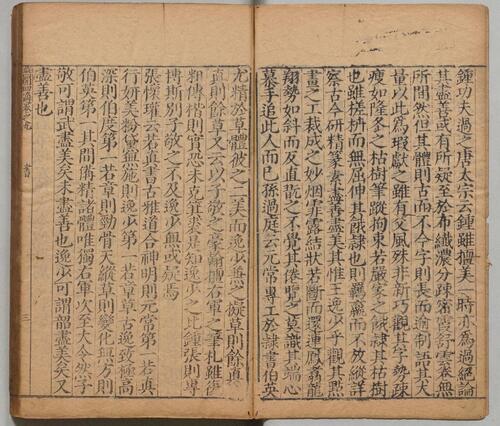 鍾功夫過之唐太宗云鍾雖擅美一時亦為過絕論
其盡善或有所疑至於布纖濃分疎密霞舒雲卷無
所間然但其體則古而不今字則長而逾制語其大
量以此為瑕獻之雖有父風殊非新巧觀其字勢疎
瘦如隆冬之枯樹筆蹤拘束若嚴家之餓隸其枯樹
也雖槎枿而無屈伸其餓隸也則羈羸而不放縱詳
察古今研精篆素盡善盡美其惟王逸少乎觀其點
畫之工裁成之妙烟霏露結狀若斷而還連鳳翥龍
翔勢如斜而反直翫之不覺其倦覽之莫識其端心
慕手追此人而已孫過庭云元常專工於隸書伯英
尤精於草體彼之二美而逸少兼之擬草則餘真
真則餘草又云以子敬之豪翰嗣右軍之筆札雖復
粗傳楷則實恐未克箕裘是知逸少之比鍾張則專
摶斯別子敬之不及逸少無或疑焉
張懷瓘云若真書古雅道合神明則元常第一若真
行妍美粉黛無施則逸少第一若章草古逸致極高
深則伯度第一若草則勁骨天縱草則變化無方則
伯英第一其間備精諸體唯獨右軍次至大令然子
敬可謂武盡美矣未盡善也逸少可謂韶盡美矣又
盡善也
書
三